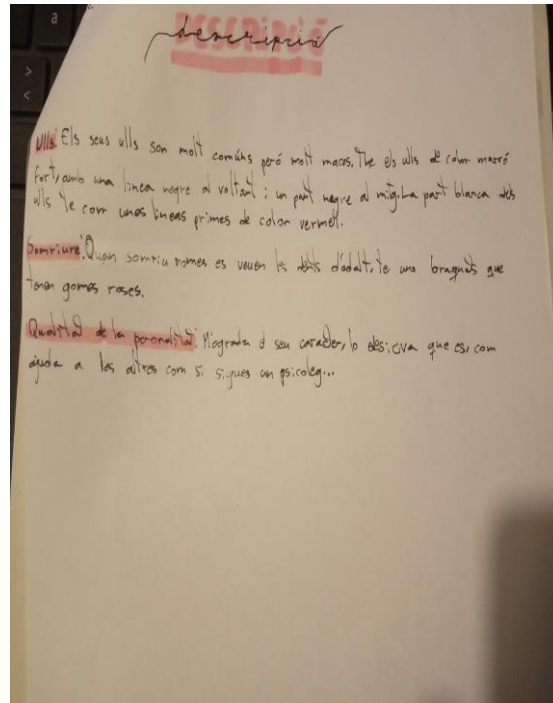 descripció
Ulls: Els seus ulls son molt comúns peró molt macos. The els ulls de color marró
Fort, amb una linea negre al voltant i un punt negre al mitg. La part blanca dels
ulls te com unes lineas primes de color vermell.
Somriure: Quan somriu nomes es veuen les dents d'adalt, te uns braguets que
tenen gomes roses.
Qualitat de la personalitat: M'agrada el seu caracter, lo que es, com
ajuda a les altres com si sigues un psicoleg...